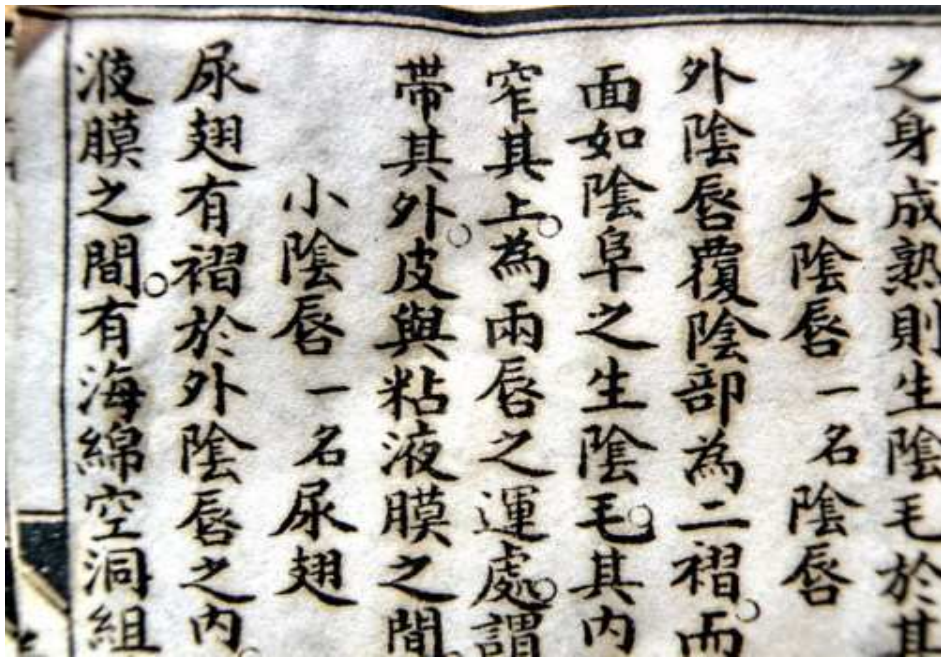 之身成熟則生陰毛於其
大陰唇一名陰唇
外陰唇覆陰部為二褶。而
面如陰阜之生陰毛。其內
窄其上。為兩唇之運處。謂
帶其外。皮與粘液膜之間。
小陰唇一名尿翅
尿翅有褶於外陰唇之內。
液膜之間。有海綿空洞組